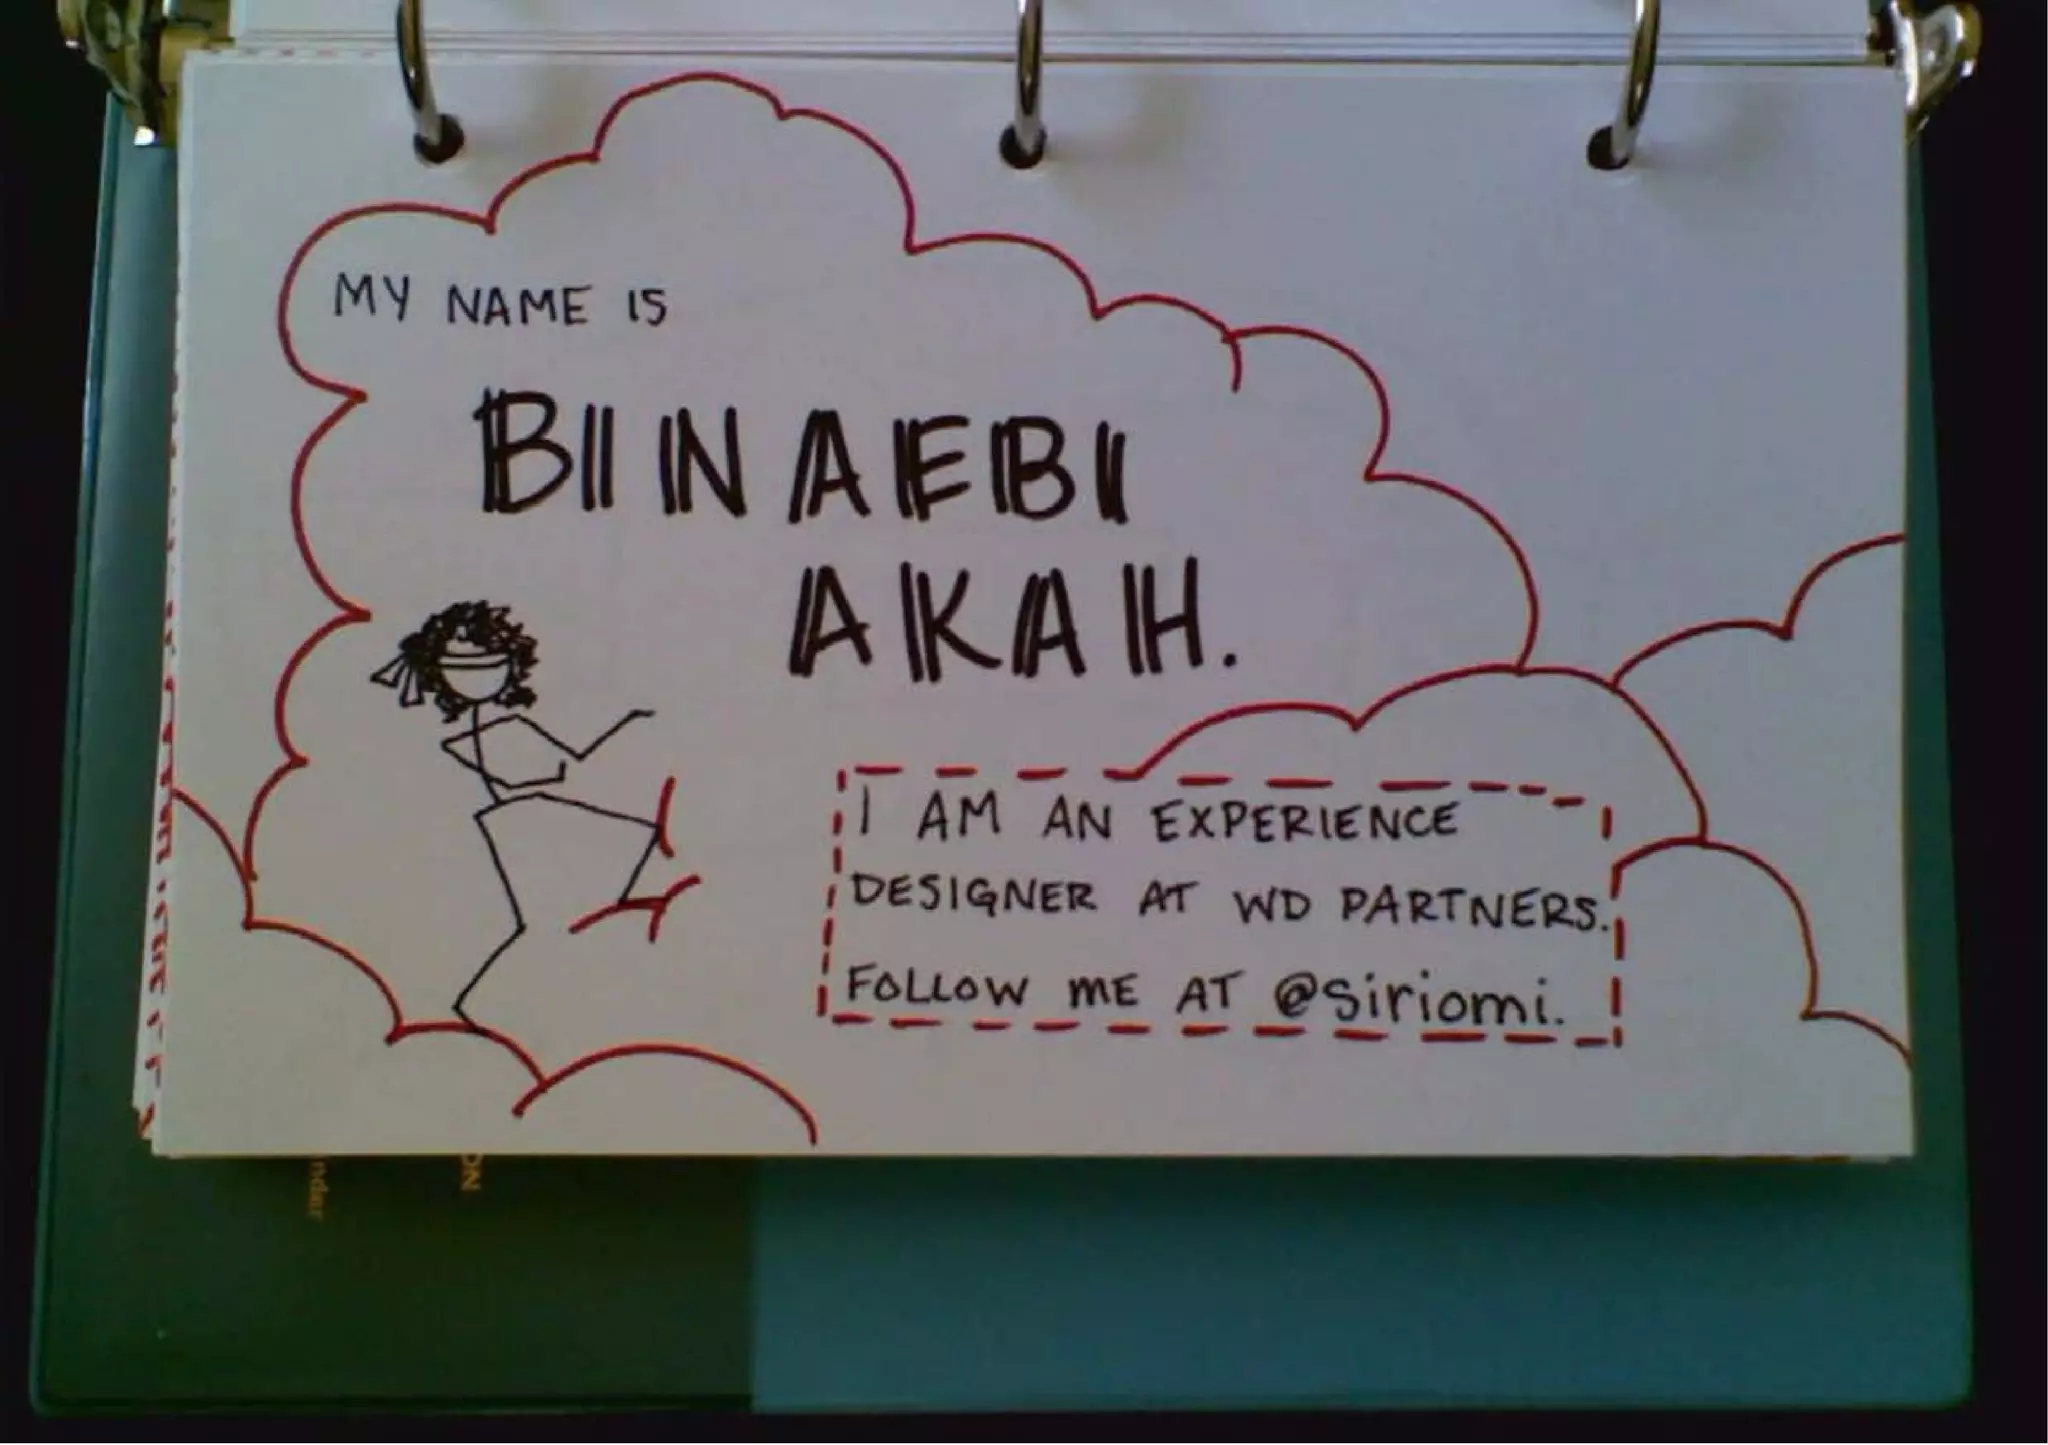 MY NAME IS
BINAEBI
AKAH.
I AM AN EXPERIENCE
DESIGNER AT WD PARTNERS.
FOLLOW ME AT @siriomi.